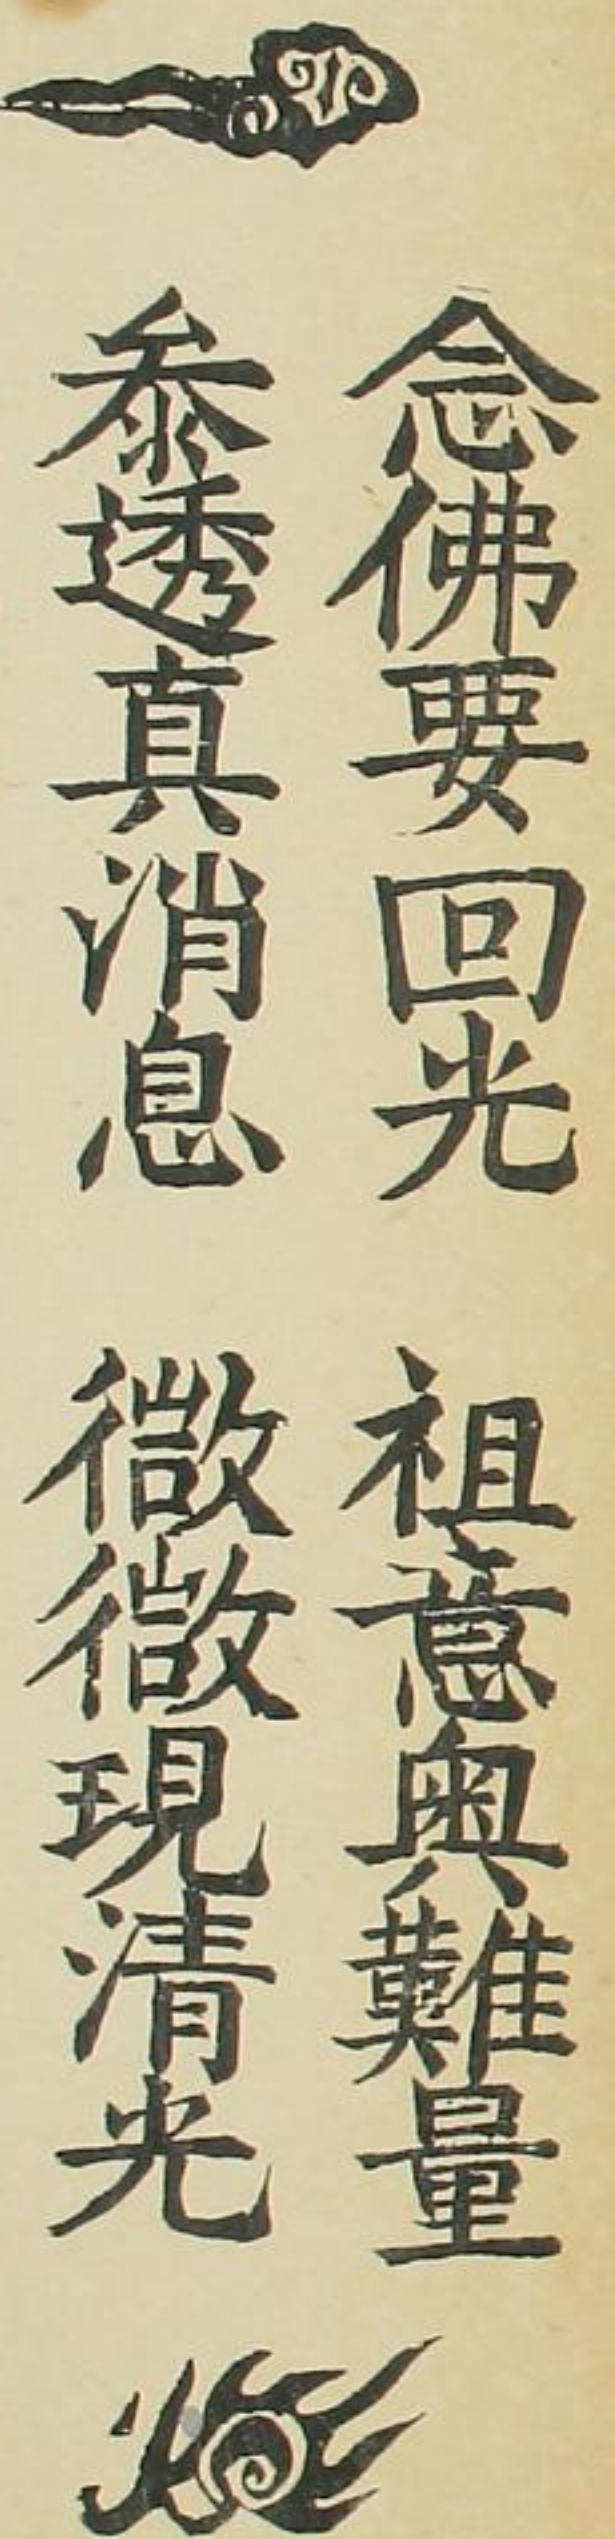 念佛要回光　祖意奥難量
叅透真消息　微微現清光